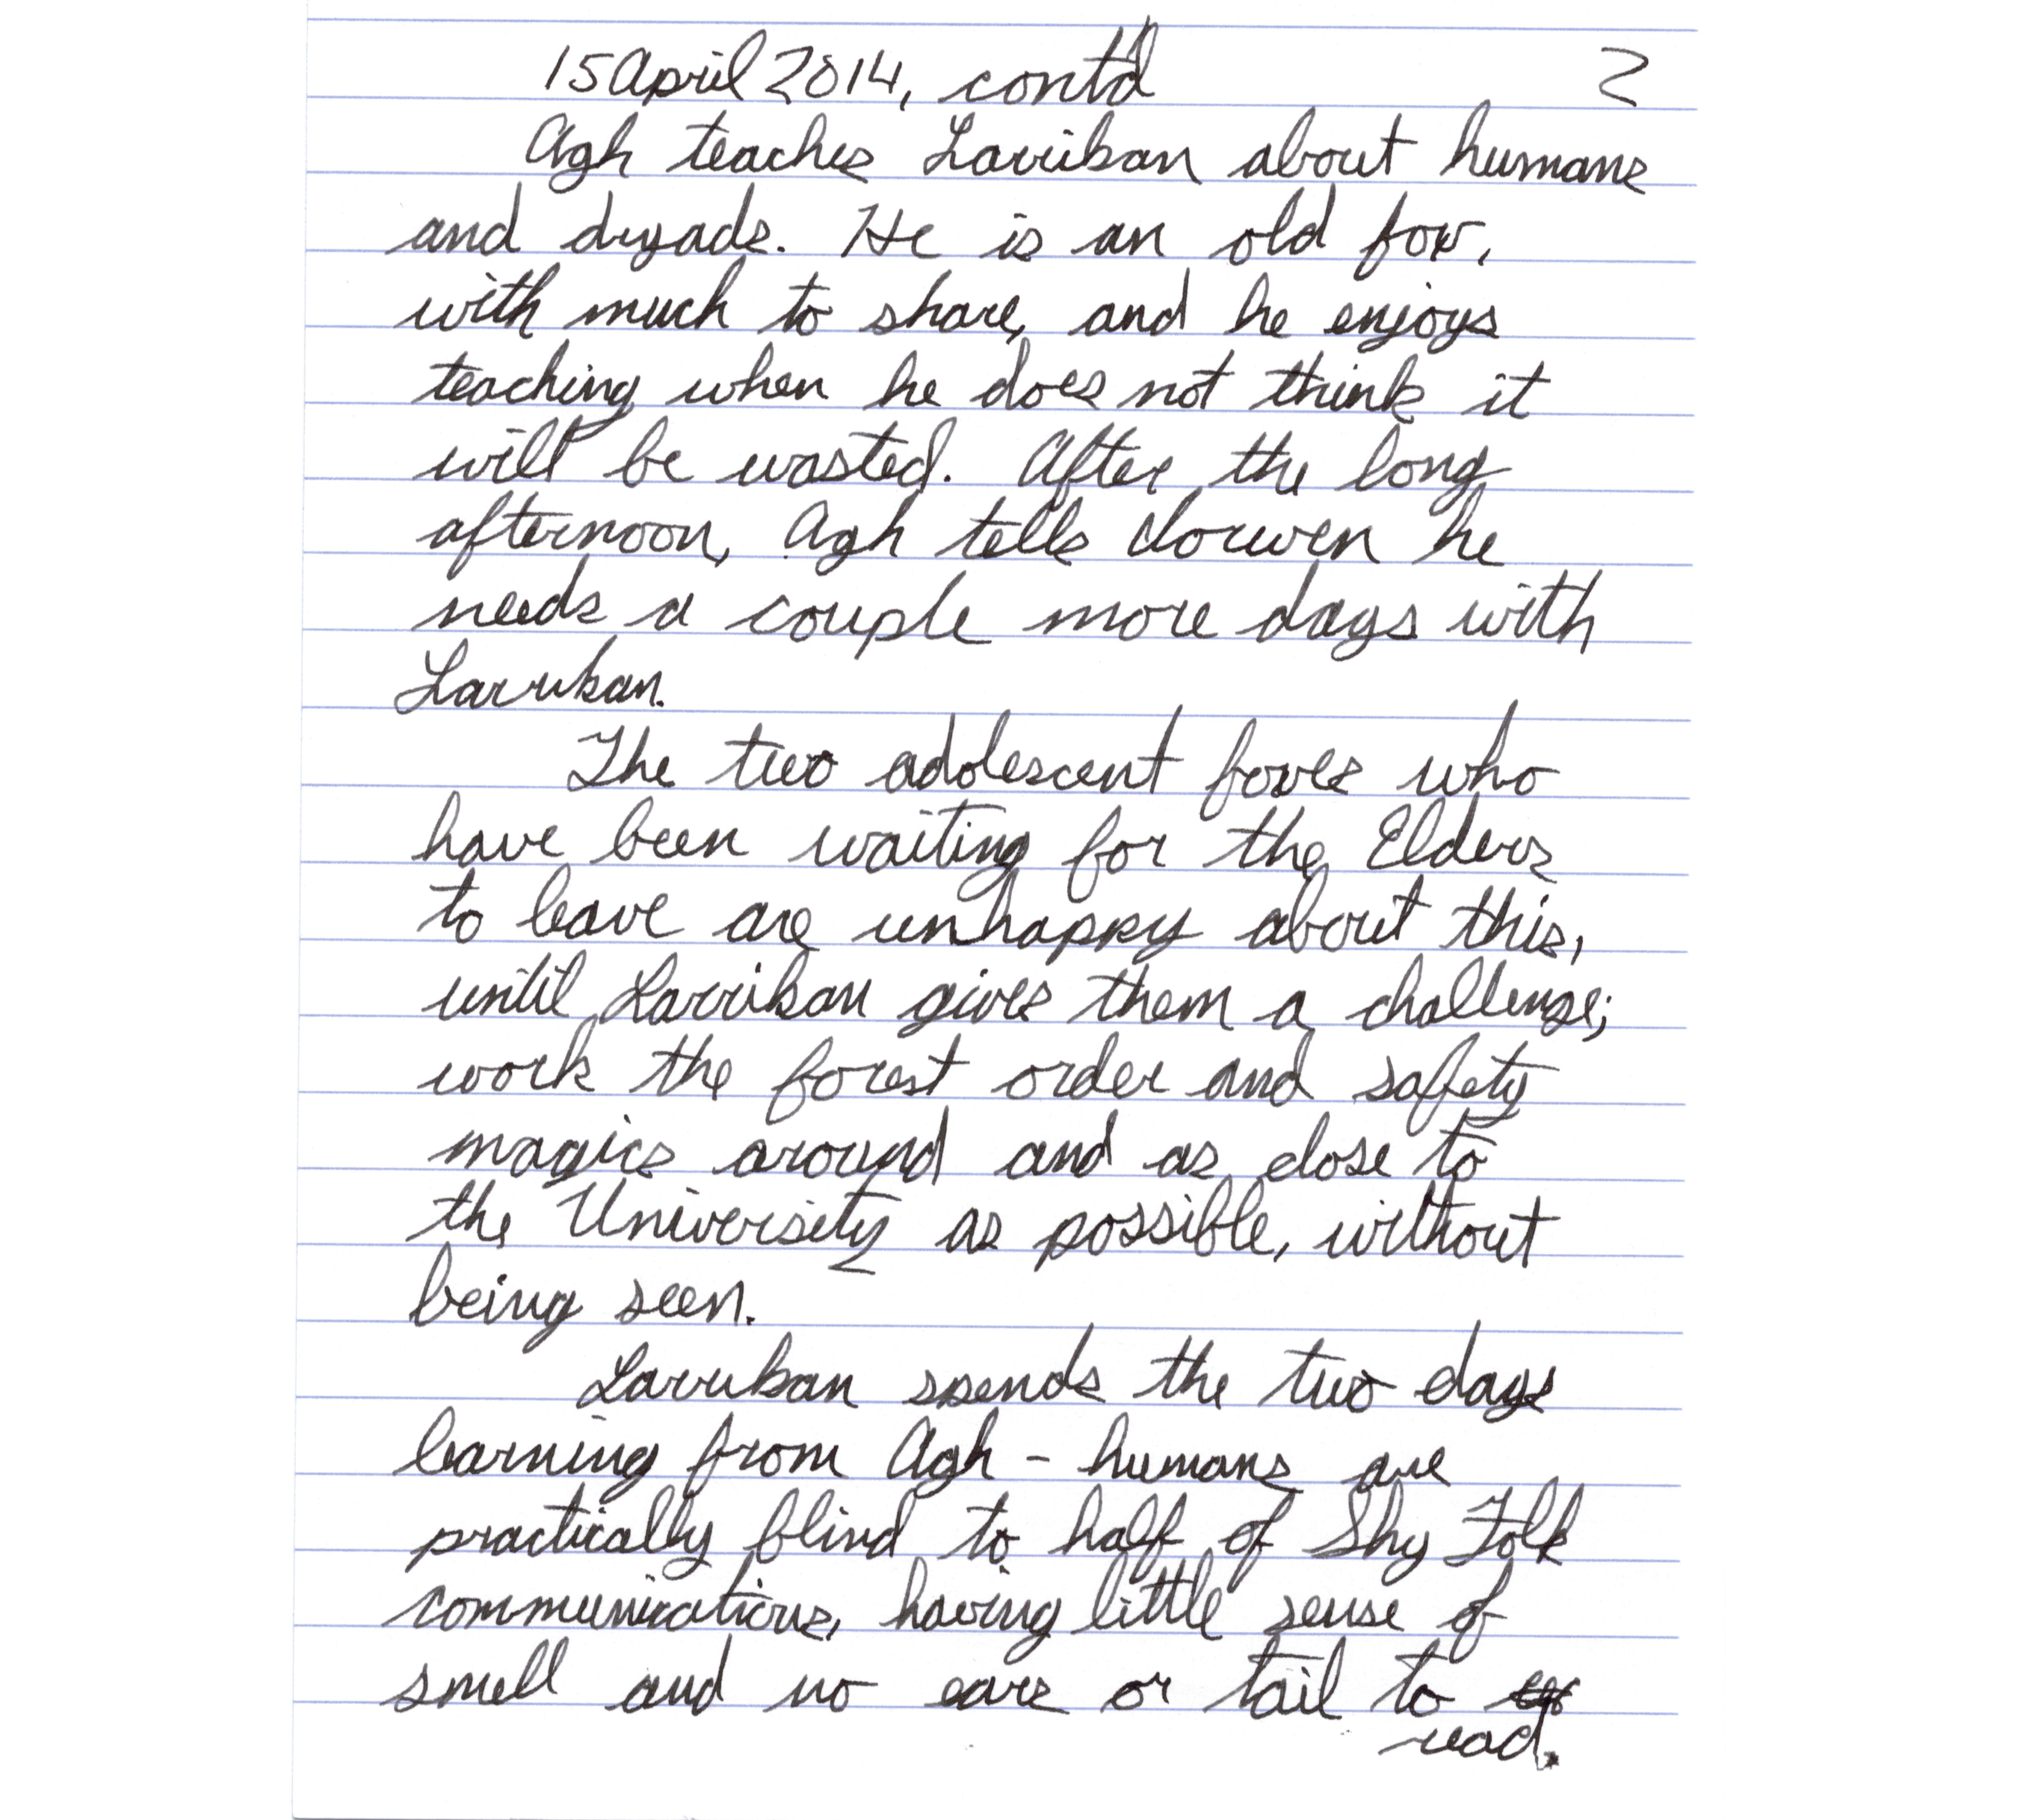 15 April 2014, contd 2
Agh teaches Larriban about humans
and dryads. He is an old fox,
with much to share, and he enjoys
teaching when he does not think it
will be wasted. After the long
afternoon, Agh tells dorwen he
needs a couple more days with
Larriban.
The two adolescent foxes who
have been waiting for the Elders
to leave are unhappy about this,
until Larriban gives them a challenge;
work the forest order and safety
magics around and as close to
the University as possible, without
being seen.
Larriban spends the two days
learning from Agh - humans are
practically blind to half of Shy Folk
communications, having little sense of
smell and no ears or tail to
read.